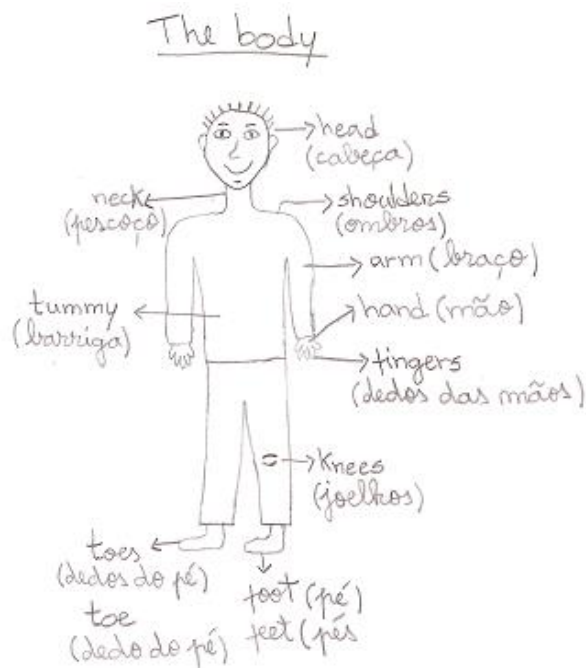 The body
head
(cabeça)
neck
(pescoço)
shoulders
(ombros)
arm (braço)
tummy
(barriga)
hand (mão)
fingers
(dedos das mãos)
knees
(joelhos)
toes
(dedos do pé)
toe
(dedo do pé)
foot (pé)
feet (pés